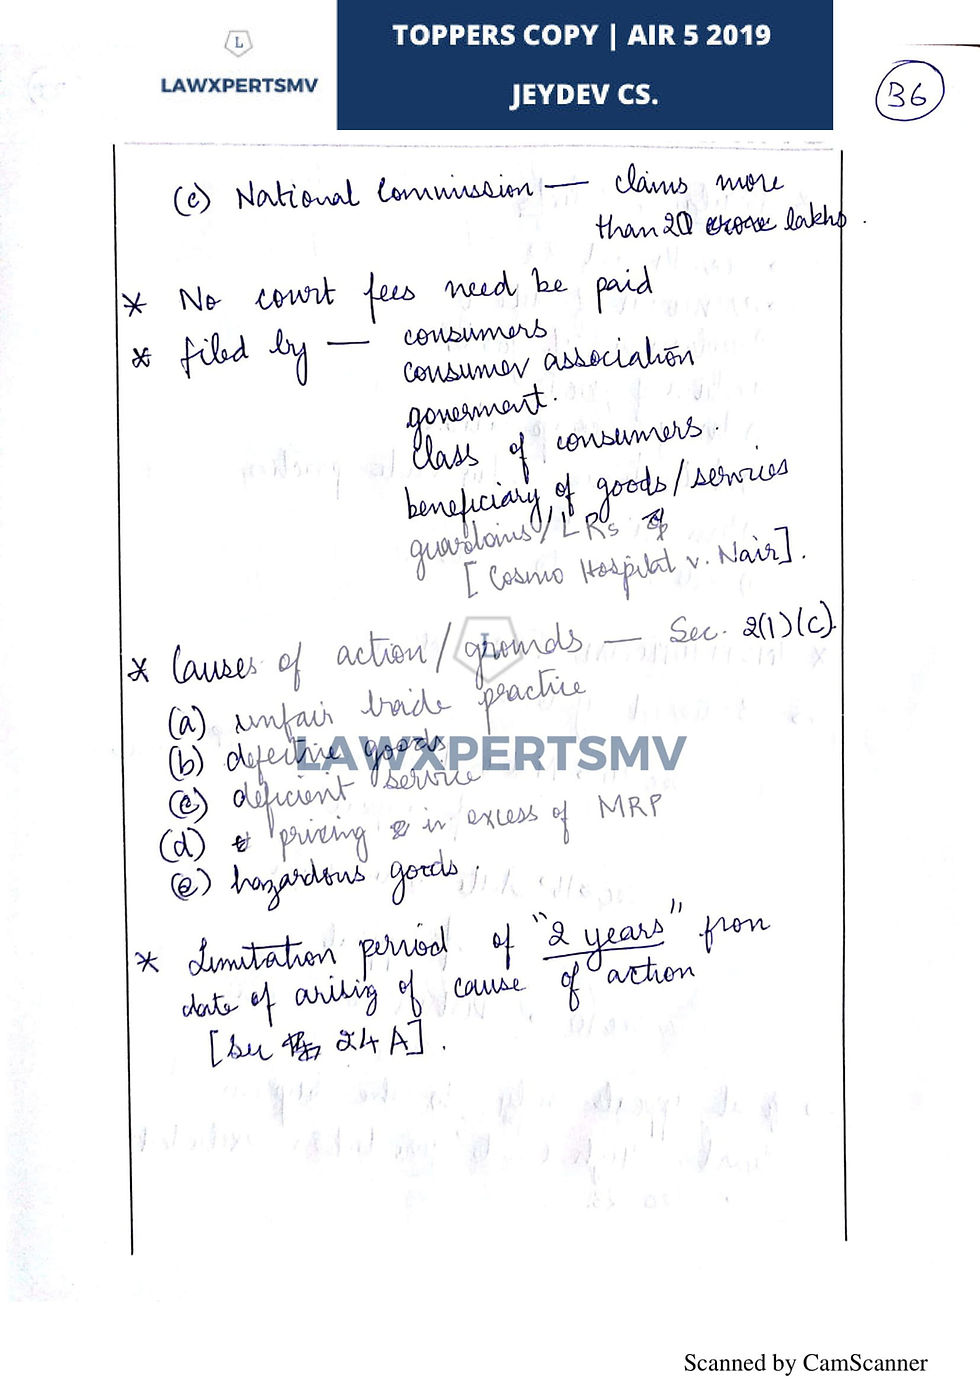 TOPPERS COPY | AIR 5 2019
JEYDEV CS.
L
LAWXPERTSMV
36
(c) National Commission — claims more
than 20 crore lakhs.
* No court fees need be paid
* filed by — consumers
consumer association
government.
class of consumers.
beneficiary of goods/services
guardians/LRs of
[Cosmo Hospital v. Nair].
* Causes of action/grounds — Sec. 2(1)(c).
(a) unfair trade practice
(b) defective goods
(c) deficient service
(d) pricing in excess of MRP
(e) hazardous goods.
LAWXPERTSMV
* Limitation period of "2 years" from
date of arising of cause of action
[Sec 24 A].
Scanned by CamScanner